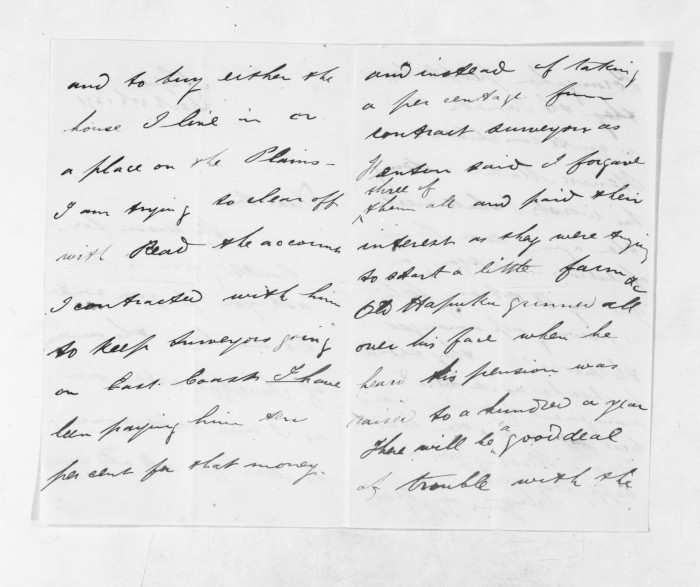 and to buy either the
house I live in or
a place on the Plains -
I am trying to clear off
with Read the accounts
I contracted with him
to keep Surveyors going
on East Coast I have
been paying him ten
per cent for that money.
and instead of taking
a per centage from
contract surveyors as
Henton said I forgave
three of
them all and paid their
interest as they were trying
to start a little farm &c
Old Hapuku grinned all
over his face when he
heard his pension was
raised to a hundred a year
There will be a good deal
of trouble with the